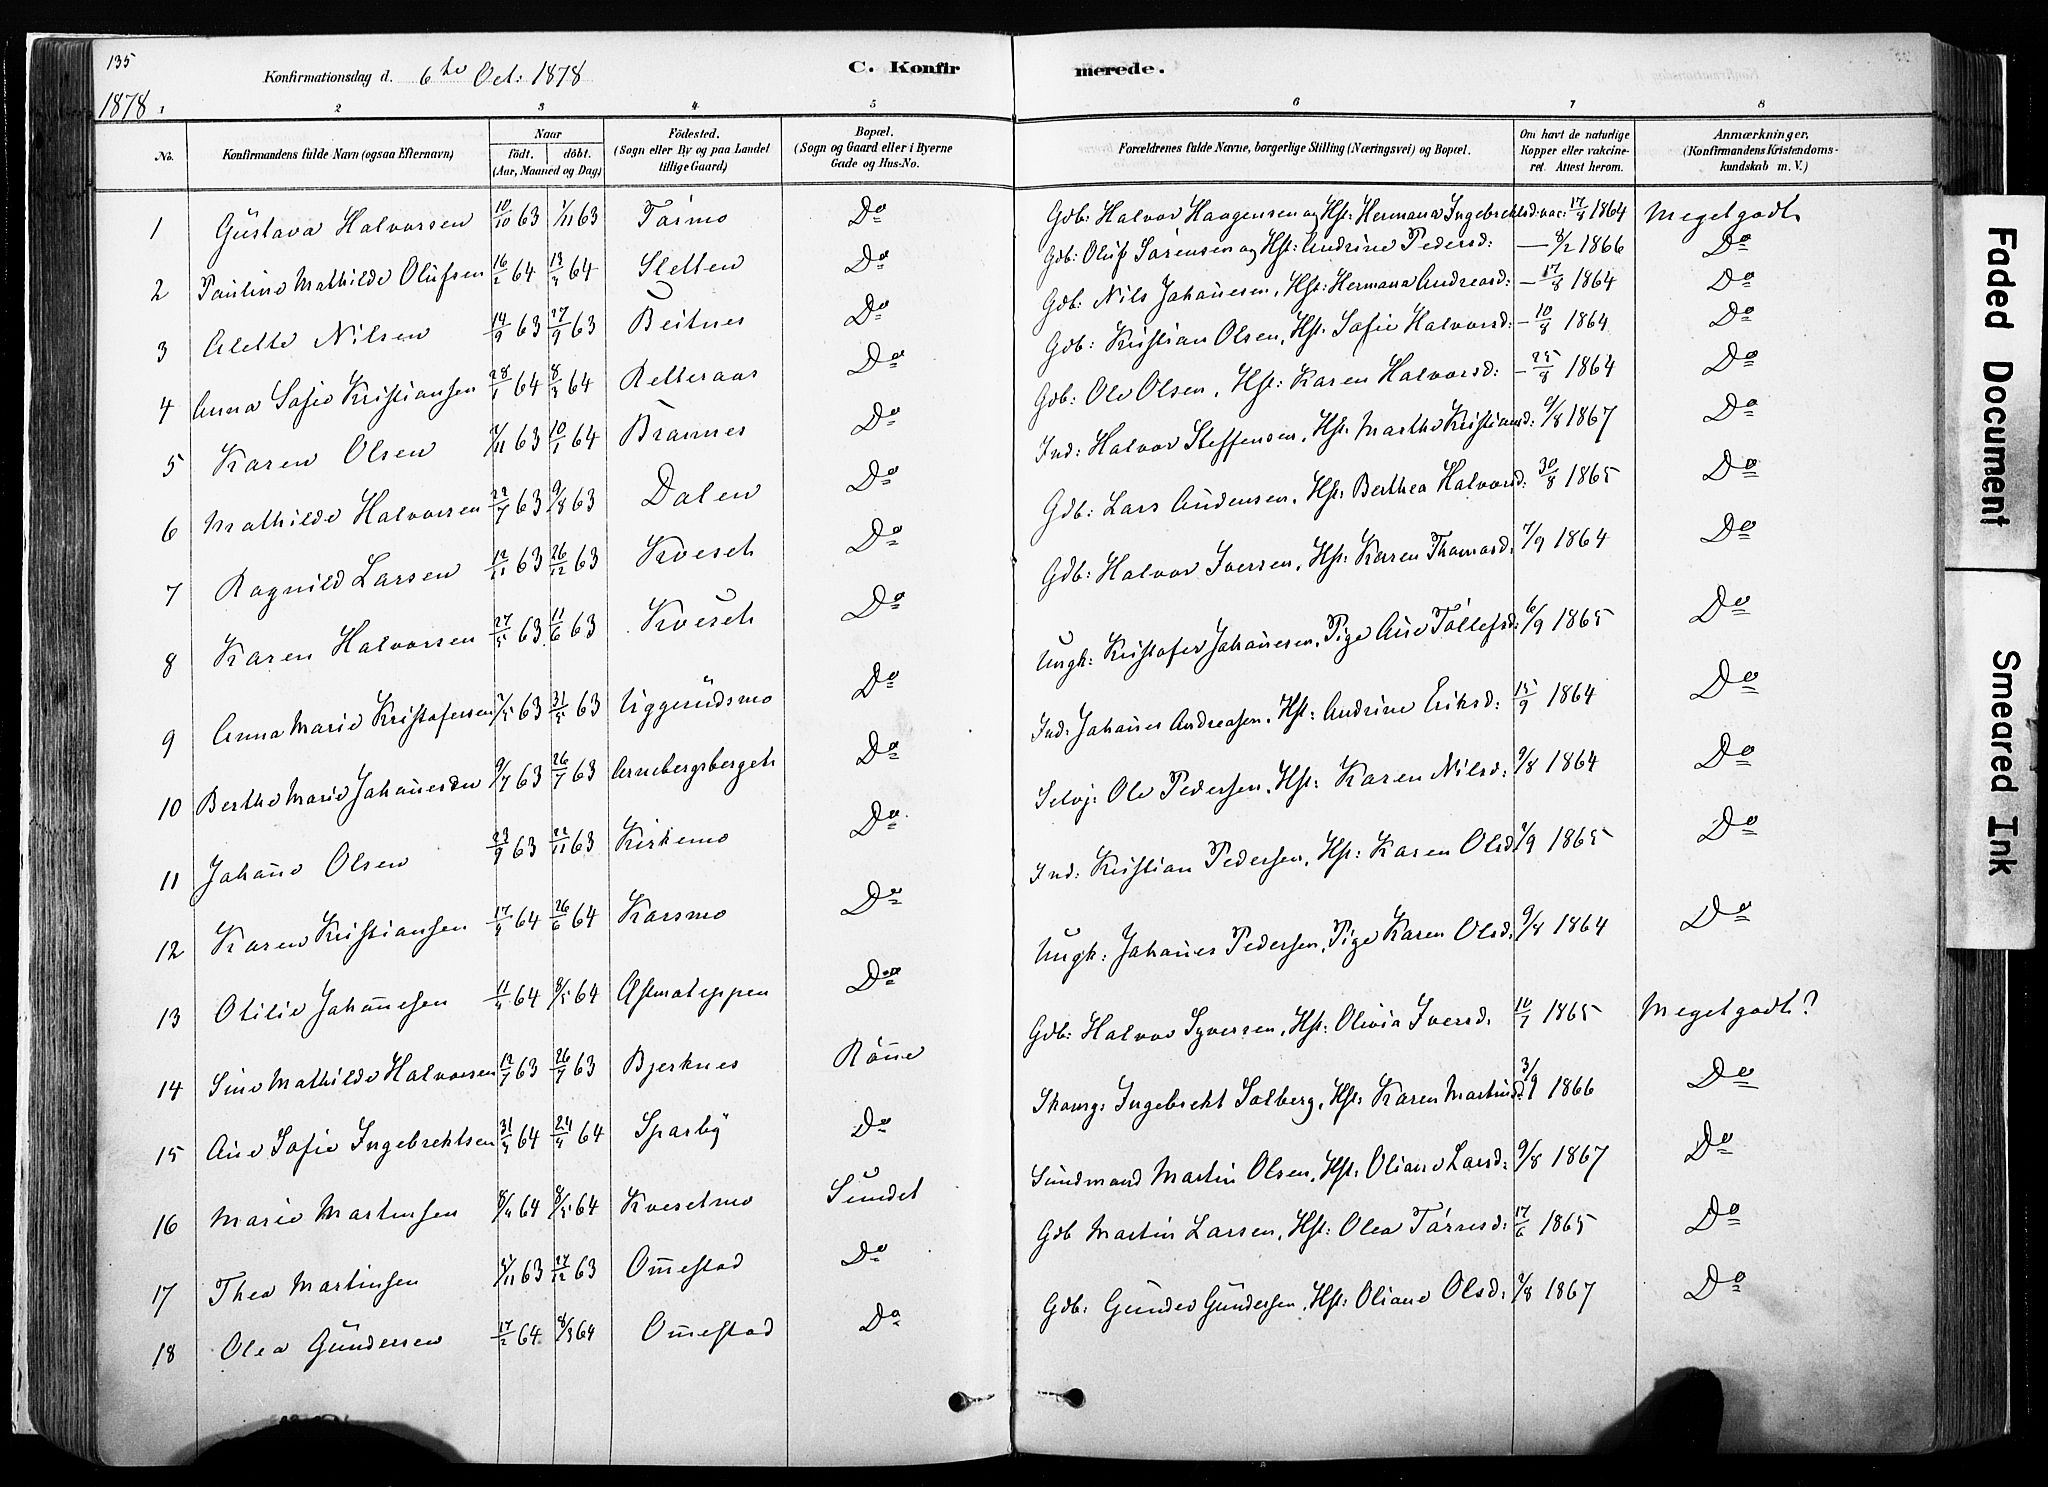 135
Konfirmationsdag d. 6te Oct: 1878
C. Konfir merede.
1878. 2 3 4 5 6 7 8
No. Konfirmandens fulde Navn (ogsaa Efternavn) Naar födt. döbt. (Aar, Maaned og Dag) Födested. (Sogn eller By og paa Landet tillige Gaard) Bopæl. (Sogn og Gaard eller i Byerne Gade og Hus-No. Forældrenes fulde Navne, borgerlige Stilling (Næringsvei) og Bopæl. Om havt de naturlige Kopper eller vakcineret. Attest herom. Anmærkninger. (Konfirmandens Kristendomskundskab m. V.)
1 Gustava Halvorsen 10/10 63 1/11 63 Do Gdb: Halvor Haagensen og Hst: Hermana Ingebrektsd: vac: 17/8 1864 Meget godt
2 Pauline Mathilde Olufsen 16/2 64 13/3 64 Sletten Do Gdb: Oluf Sørensen og Hst: Andrine Pedersd: — 8/2 1866 Do
3 Alette Nilsen 14/9 63 27/9 63 Beitnes Do Gdb: Nils Johanesen, Hst: Hermana Andreasd: — 17/8 1864 Do
4 Anna Sofie Kristiansen 28/1 64 8/3 64 Retteraas Do Gdb: Kristian Olsen, Hst: Sofie Halvorsd: — 10/8 1864 Do
5 Karen Olsen 63 10/1 64 Do Gdb: Ole Olsen, Hst: Karen Halvorsd: — 25/8 1864 Do
6 Mathilde Halvorsen 22/7 63 9/8 63 Dalen Do Ind: Halvor Steffensen, Hst: Marthe Kristiansd: 9/8 1867 Do
7 Ragnild Larsen 12/11 63 26/12 63 Kveset Do Gdb: Lars Audensen, Hst: Berthea Halvorsd: 30/8 1865 Do
8 Karen Halvorsen 27/5 63 11/6 63 Kveset Do Gdb: Halvor Iversen, Hst: Karen Thomasd: 7/9 1864 Do
9 Anna Marie Kristofersen 63 31/5 63 Do Ungk: Kristofer Johanesen, Pige Ane Tollefsd: 6/9 1865 Do
10 Berthe Marie Johanesen 9/7 63 26/7 63 Arnebergsberget Do Ind: Johanes Andreasen, Hst: Andrine Eriksd: 15/9 1864 Do
11 Johane Olsen 23/9 63 22/11 63 Kirkemo Do Selvj: Ole Pedersen, Hst: Karen Nilsd: 9/8 1864 Do
12 Karen Kristiansen 17/4 64 26/6 64 Karsmo Do Ind: Kristian Pedersen, Hst: Karen Olsd: 1865 Do
13 Otilie Johannesen 11/4 64 8/5 64 Do Ungk: Johanes Pedersen, Pige Karen Olsd: 9/8 1864 Do
14 Sine Mathilde Halvorsen 12/7 63 26/7 63 Bjerknes Rönne Gdb: Halvor Syversen, Hst: Olivia Iversd. 10/7 1865 Meget godt?
15 Ane Sofie Ingebrektsen 31/3 64 24/4 64 Sparby Do Skomg: Ingebrekt Solberg, Hst: Karen Martinsd: 3/9 1866 Do
16 Marie Martinsen 8/4 64 8/5 64 Kvesetmo Sundet Sundmand Martin Olsen, Hst: Oliane Larsd: 9/8 1867 Do
17 Thea Martinsen 63 27/12 63 Ommestad Do Gdb Martin Larsen, Hst: Olea Tørresd: 17/6 1865 Do
18 Olea Gundersen 17/2 64 8/3 64 Ommestad Do Gdb: Gunder Gundersen, Hst: Oliane Olsd: 1867 Do
Faded Document
Smeared Ink